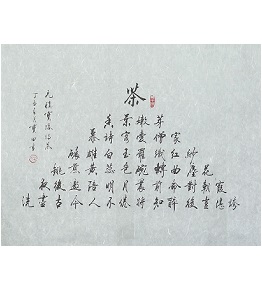 茶
香葉嫩芽
慕詩客愛僧家
碾雕白玉羅織紅紗
銚煎黃蕊色碗轉曲塵花
夜後邀陪明月晨前命對朝霞
洗盡古今人不倦將知醉後豈堪誇
元稹寶塔詩茶